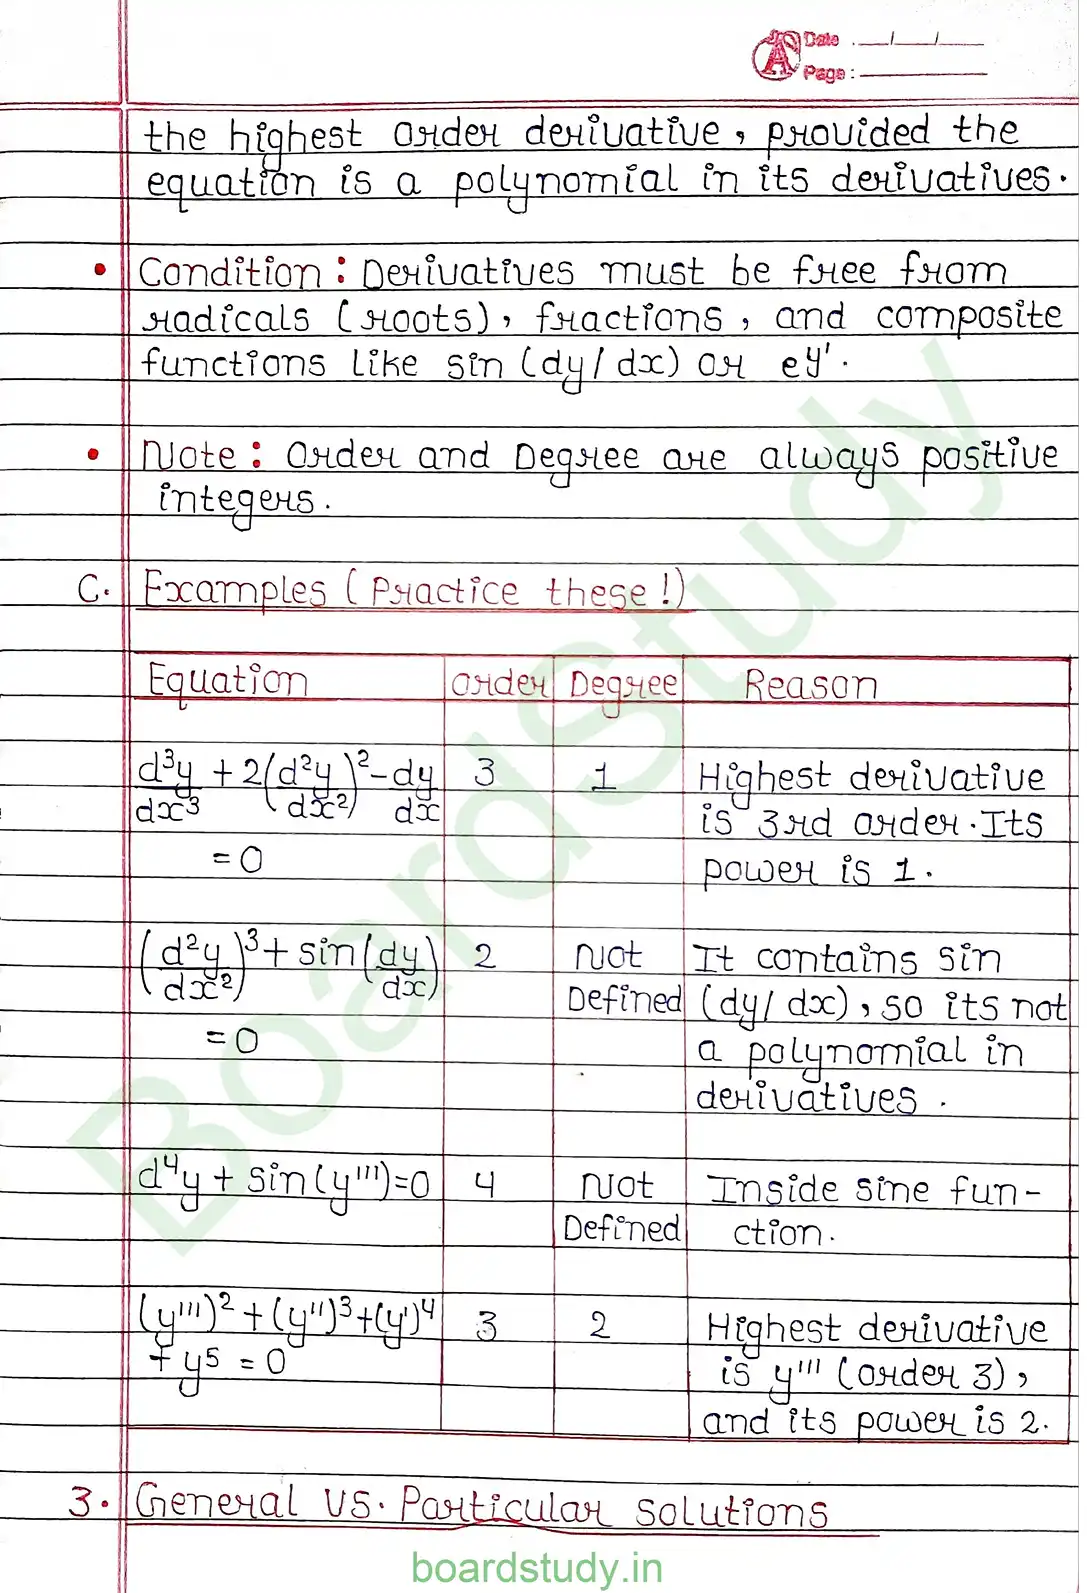 Date : __/__/__
Page : ______
the highest order derivative, provided the
equation is a polynomial in its derivatives.
• Condition : Derivatives must be free from
radicals (roots), fractions, and composite
functions like sin (dy/dx) or ey'.
• Note : Order and Degree are always positive
integers.
C. Examples (Practice these!)
Equation | Order | Degree | Reason
d³y/dx³ + 2(d²y/dx²)² - dy/dx | 3 | 1 | Highest derivative
is 3rd order. Its
= 0 power is 1.
(d²y/dx²)³ + sin(dy/dx) | 2 | Not | It contains sin
Defined (dy/dx), so its not
= 0 a polynomial in
derivatives.
d⁴y + sin(y''')=0 | 4 | Not | Inside sine fun-
Defined ction.
(y''')² + (y'')³ + (y')⁴ | 3 | 2 | Highest derivative
+ y⁵ = 0 is y''' (order 3),
and its power is 2.
3. General vs. Particular solutions
BoardStudy
boardstudy.in